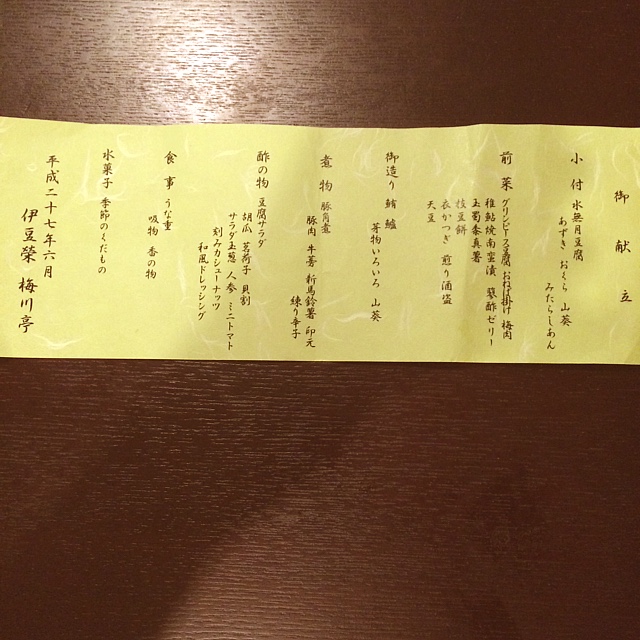 御献立
小付 水無月豆腐
あずき おくら 山葵
みたらしあん
前菜 グリンピース豆腐 おねば掛け 梅肉
稚鮎焼南蛮漬 蓼酢ゼリー
玉蜀黍真薯
枝豆餅
衣かつぎ 煎り酒盗
天豆
御造り 鮪 鱸
芽物いろいろ 山葵
煮物 豚角煮
豚肉 牛蒡 新馬鈴薯 印元
練り辛子
酢の物 豆腐サラダ
胡瓜 茗荷子 貝割
サラダ玉葱 人参 ミニトマト
刻みカシューナッツ
和風ドレッシング
食事 うな重
吸物 香の物
水菓子 季節のくだもの
平成二十七年六月
伊豆榮 梅川亭